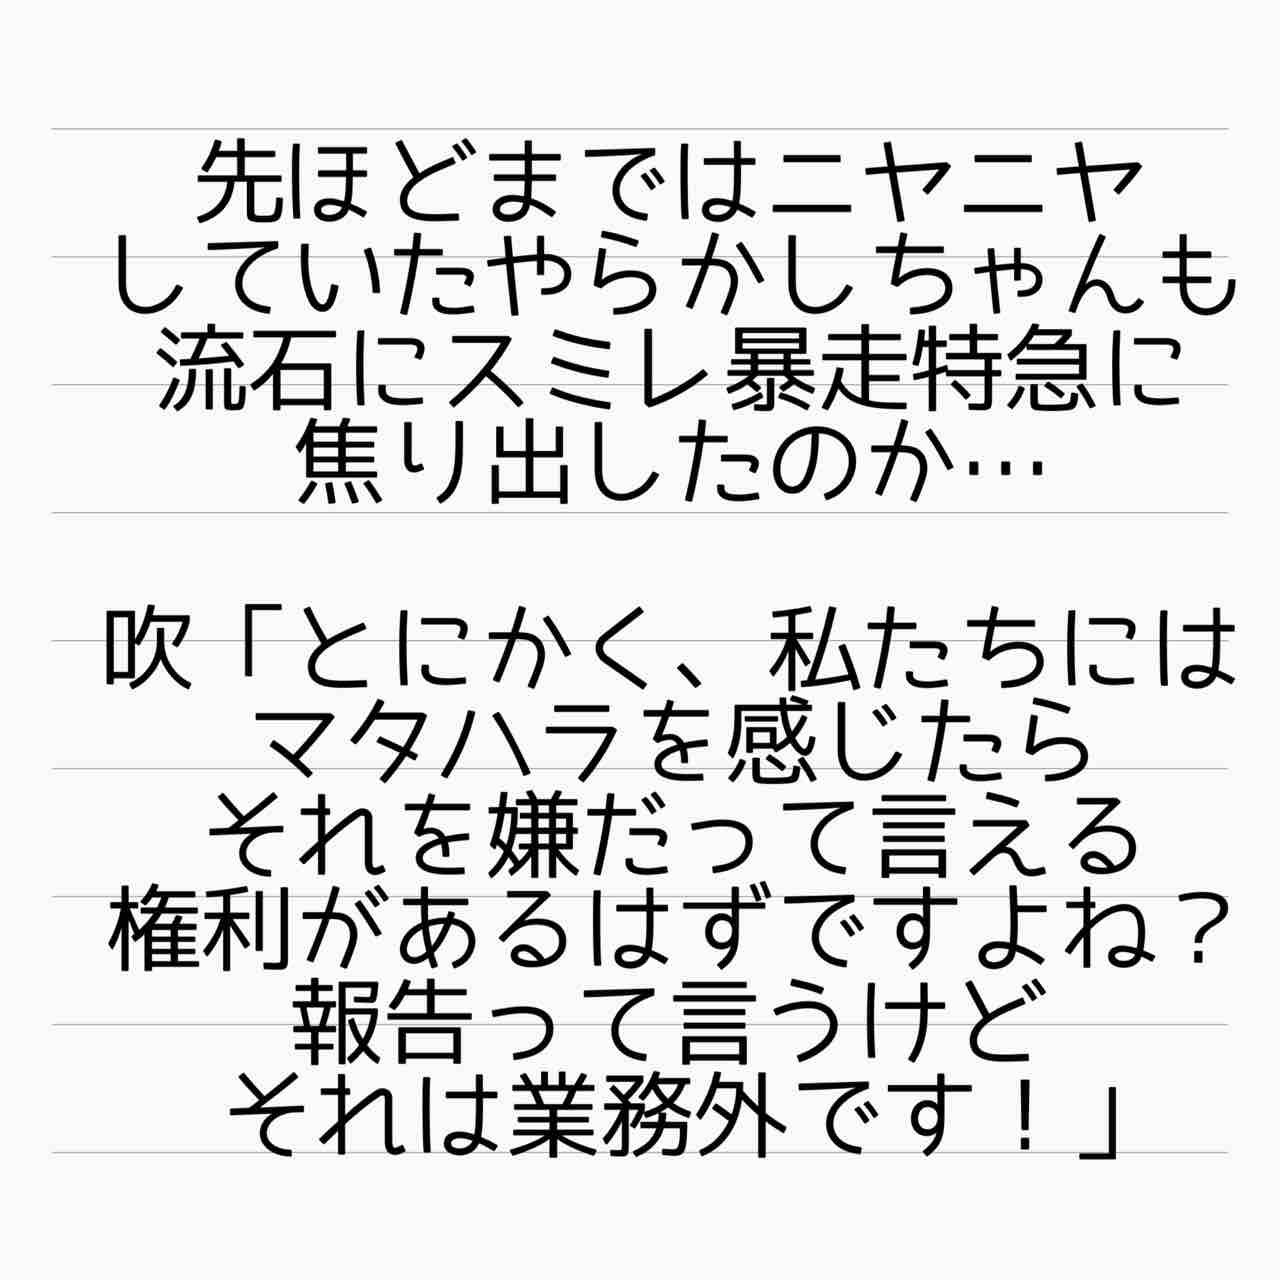 先ほどまではニヤニヤ
していたやらかしちゃんも
流石にスミレ暴走特急に
焦り出したのか…
吹「とにかく、私たちには
マタハラを感じたら
それを嫌だって言える
権利があるはずですよね？
報告って言うけど
それは業務外です！」